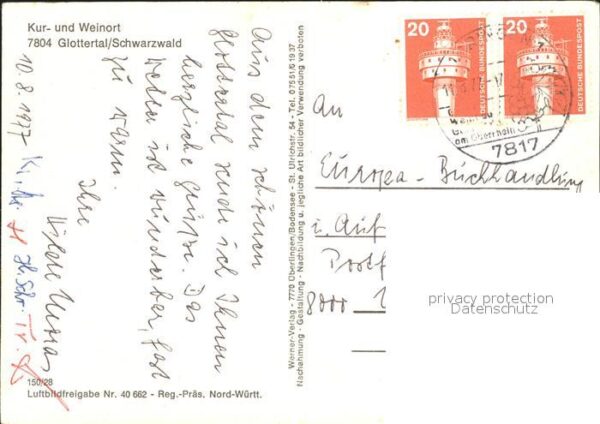 Kur- und Weinort
7804 Glottertal/Schwarzwald
10.8.1977
Aus dem schönen
Glottertal sende ich Ihnen
herzliche Grüsse. Das
Wetter ist wunderbar, fast
zu warm.
Ihre
150/28
Luftbildfreigabe Nr. 40 662 - Reg.-Präs. Nord-Württ.
Werner-Verlag - 7770 Überlingen/Bodensee - St. Ulrichstr. 54 - Tel. 07551/61937
Nachahmung - Gestaltung - Nachbildung u. jegliche Art bildlicher Verwendung verboten
20 DEUTSCHE BUNDESPOST
20 DEUTSCHE BUNDESPOST
am Oberrhein
7817
An
Europa-Buchhandlung
i. Auf
Postf
8000
privacy protection
Datenschutz